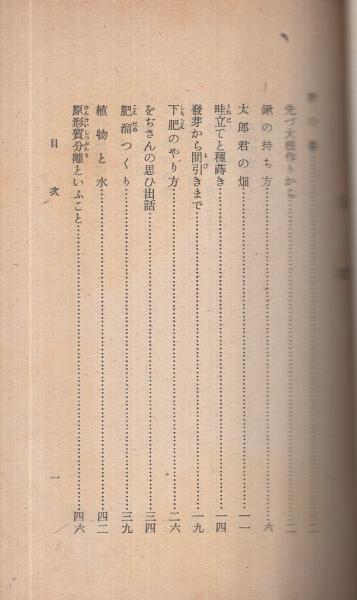 先づ大種作りから……二
鍬の持ち方……六
太郎君の畑……一一
畦立てと種蒔き……一四
發芽から間引きまで……一九
下肥のやり方……二六
をぢさんの思ひ出話……三四
肥溜つくり……三九
植物と水……四二
原形質分離といふこと……四六
目次
一